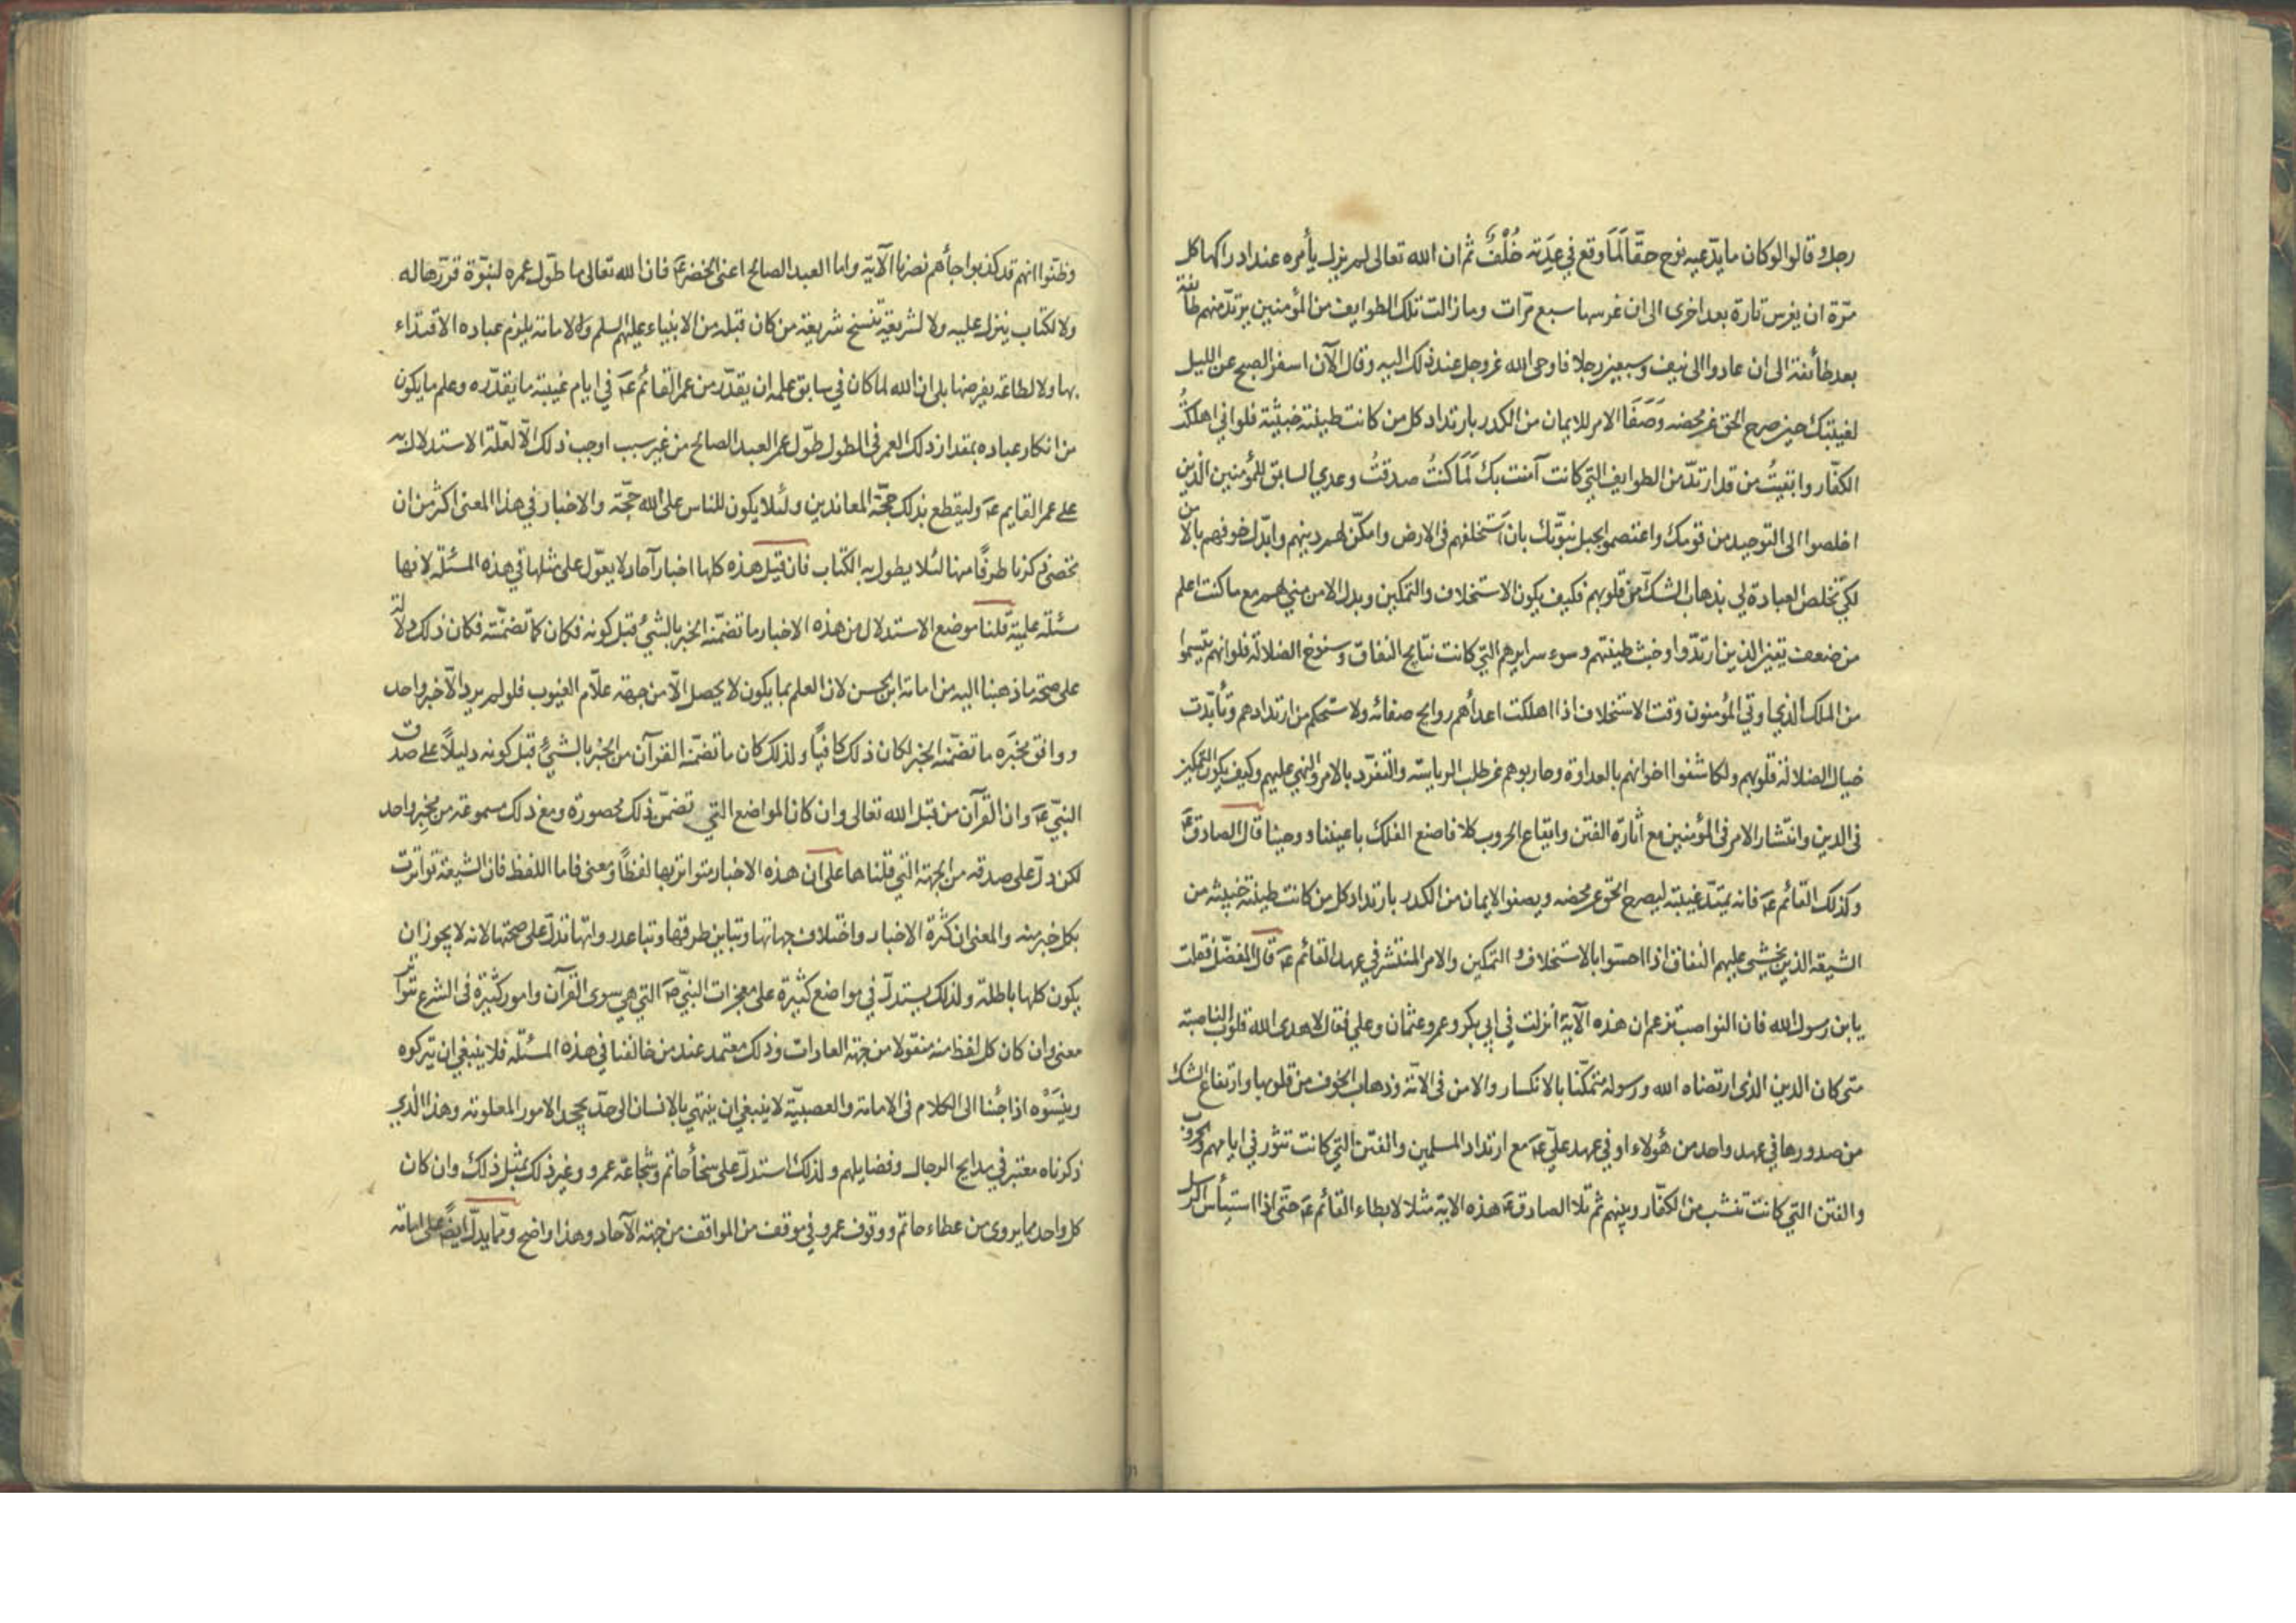 رجل وقالوا لو كان ما يدّعيه نوح حقّا لَمَا وقع في عِدَته خُلْفٌ ثم ان الله تعالى لم يزل يأمره عند ادراكها كل
مرّة ان يغرس تارة بعد اخرى الى ان غرسها سبع مرّات وما زالت تلك الطوايف من المؤمنين يرتدّ منهم طائفة
بعد طائفة الى ان عادوا الى نيف وسبعين رجلا فاوحى الله عزوجل عند ذلك اليه وقال الآن اسفر الصبح عن الليل
لغيبتك حين صرح الحق عن محضه وَصَفَا الامر للايمان من الكدر بارتداد كل من كانت طينته خبيثة فلو اني اهلكتُ
الكفّار وابقيتُ من قد ارتدّ من الطوايف التي كانت آمنت بك لَمَا كنتُ صدقتُ وعدي السابق للمؤمنين الذين
اخلصوا الى التوحيد من قومك واعتصموا بحبل نبوّتك بان استخلفهم في الارض وامكّن لهم دينهم وابدّل خوفهم بالامن
لكي تخلص العبادة لي بذهاب الشكّ من قلوبهم فكيف يكون الاستخلاف والتمكين وبدل الامن مني لهم مع ما كنت اعلم
من ضعف يقين الذين ارتدّوا وخبث طينتهم وسوء سرايرهم التي كانت نتايج النفاق وسنوخ الضلالة فلو انهم تنسموا
من الملك الذي اوتي المؤمنون وقت الاستخلاف اذا اهلكت اعدأهم روايح صفائه ولاستحكم من ارتدادهم وتأبّدت
خبال الضلالة قلوبهم ولكاشفوا اخوانهم بالعداوة وحاربوهم عن طلب الرياسة والتفرّد بالامر والنهي عليهم وكيف يكون التمكين
في الدين وانتشار الامر في المؤمنين مع اثارة الفتن وايقاع الحروب كلا فاصنع الفلك باعيننا ووحينا قال الصادق عَ
وكذلك القائم عَ فانه يمتدّ غيبته ليصرح الحق عن محضه ويصفو الايمان من الكدر بارتداد كل من كانت طينته خبيثه من
الشيعة الذين يخشى عليهم النفاق اذا احسّوا بالاستخلاف و التمكين والامر المنتشر في عهد القائم عَ قال المفضّل فقلت
يابن رسول الله فان النواصب تزعم ان هذه الآية انزلت في ابي بكر وعمر وعثمان وعلي فقال لا هدى الله قلوب الناصبة
متى كان الدين الذي ارتضاه الله ورسوله متمكّنا بالانكسار والامن في الامّة وذهاب الخوف من قلوبها وارتفاع الشك
من صدورها في عهد واحد من هؤلاء او في عهد عليّ عَ مع ارتداد المسلمين والفتن التي كانت تثور في ايامهم والحروب
والفتن التي كانت تنشب من الكفّار وبينهم ثم تلا الصادق عَ هذه الاية مثلا لابطاء القائم عَ حتّى اذا استيأس الرسل
وظنّوا انهم قد كذبوا جأهم نصرنا الآية واما العبد الصالح اعنى الخضر عَ فان الله تعالى ما طوّل عمره لنبوّة قرّرها له
ولا لكتاب ينزل عليه ولا لشريعة تنسخ شريعة من كان قبله من الانبياء عليهم السلم ولا لامامة يلزم عباده الاقتداء
بها ولا لطاعة يفرضها بلى ان الله لما كان في سابق علمه ان يقدّر من عمر القائم عَ في ايام غيبته ما يقدّره وعلم ما يكون
من انكار عباده بمقدار ذلك العمر في الطول طوّل عمر العبد الصالح من غير سبب اوجب ذلك الّا لعلّة الاستدلال به
على عمر القايم عَ وليقطع بذلك حجّة المعاندين ولئلا يكون للناس على الله حجّة والاخبار في هذا المعنى اكثر من ان
تحصى ذكرنا طرفًا منها لئلا يطول به الكتاب فان قيل هذه كلها اخبار آحاد لا يعوّل على مثلها في هذه المسئلة لانها
مسئلة علمية قلنا موضع الاستدلال من هذه الاخبار ما تضمّنه الخبر بالشيء قبل كونه فكان كما تضمّنته فكان ذلك دلالة
على صحّة ما ذهبنا اليه من امامة ابن الحسن لان العلم بما يكون لا يحصل الّا من جهة علّام الغيوب فلو لم يرد الّا خبر واحد
ووافق مخبَره ما تضمّنه الخبر لكان ذلك كافيًا ولذلك كان ما تضمّنه القرآن من الخبر بالشيء قبل كونه دليلًا على صدق
النبيّ عَ وان القرآن من قبل الله تعالى وان كان المواضع التي تضمّن ذلك محصورة ومع ذلك مسموعة من مخبِر واحد
لكن دلّ على صدقه من الجهة التي قلناها على ان هذه الاخبار متواتر بها لفظًا ومعنى فاما اللفظ فان الشيعة تواترت
بكل خبر منه والمعنى ان كثرة الاخبار واختلاف جهاتها وتباين طرقها وتباعد رواتها تدلّ على صحتها لانه لا يجوز ان
يكون كلها باطلة ولذلك يستدلّ في مواضع كثيرة على معجزات النبيّ صَ التي هي سوى القرآن وامور كثيرة في الشرع تتواتر
معنى وان كان كل لفظ منه منقولا من جهة العادات وذلك معتمد عند من خالفنا في هذه المسئلة فلا ينبغي ان يتركوه
وينسَوْه اذا جئنا الى الكلام في الامامة والعصبيّة لا ينبغي ان ينتهي بالانسان الى حدّ يجحد الامور المعلومة وهذا الذي
ذكرناه معتبر في مدايح الرجال وفضايلهم ولذلك استدلّ على سخأ حاتم وشجاعة عمرو وغير ذلك بمثل ذلك وان كان
كل واحد مما يروى من عطاء حاتم ووقوف عمرو في موقف من المواقف من جهة الآحاد وهذا واضح وممّا يدلّ ايضًا على امامة